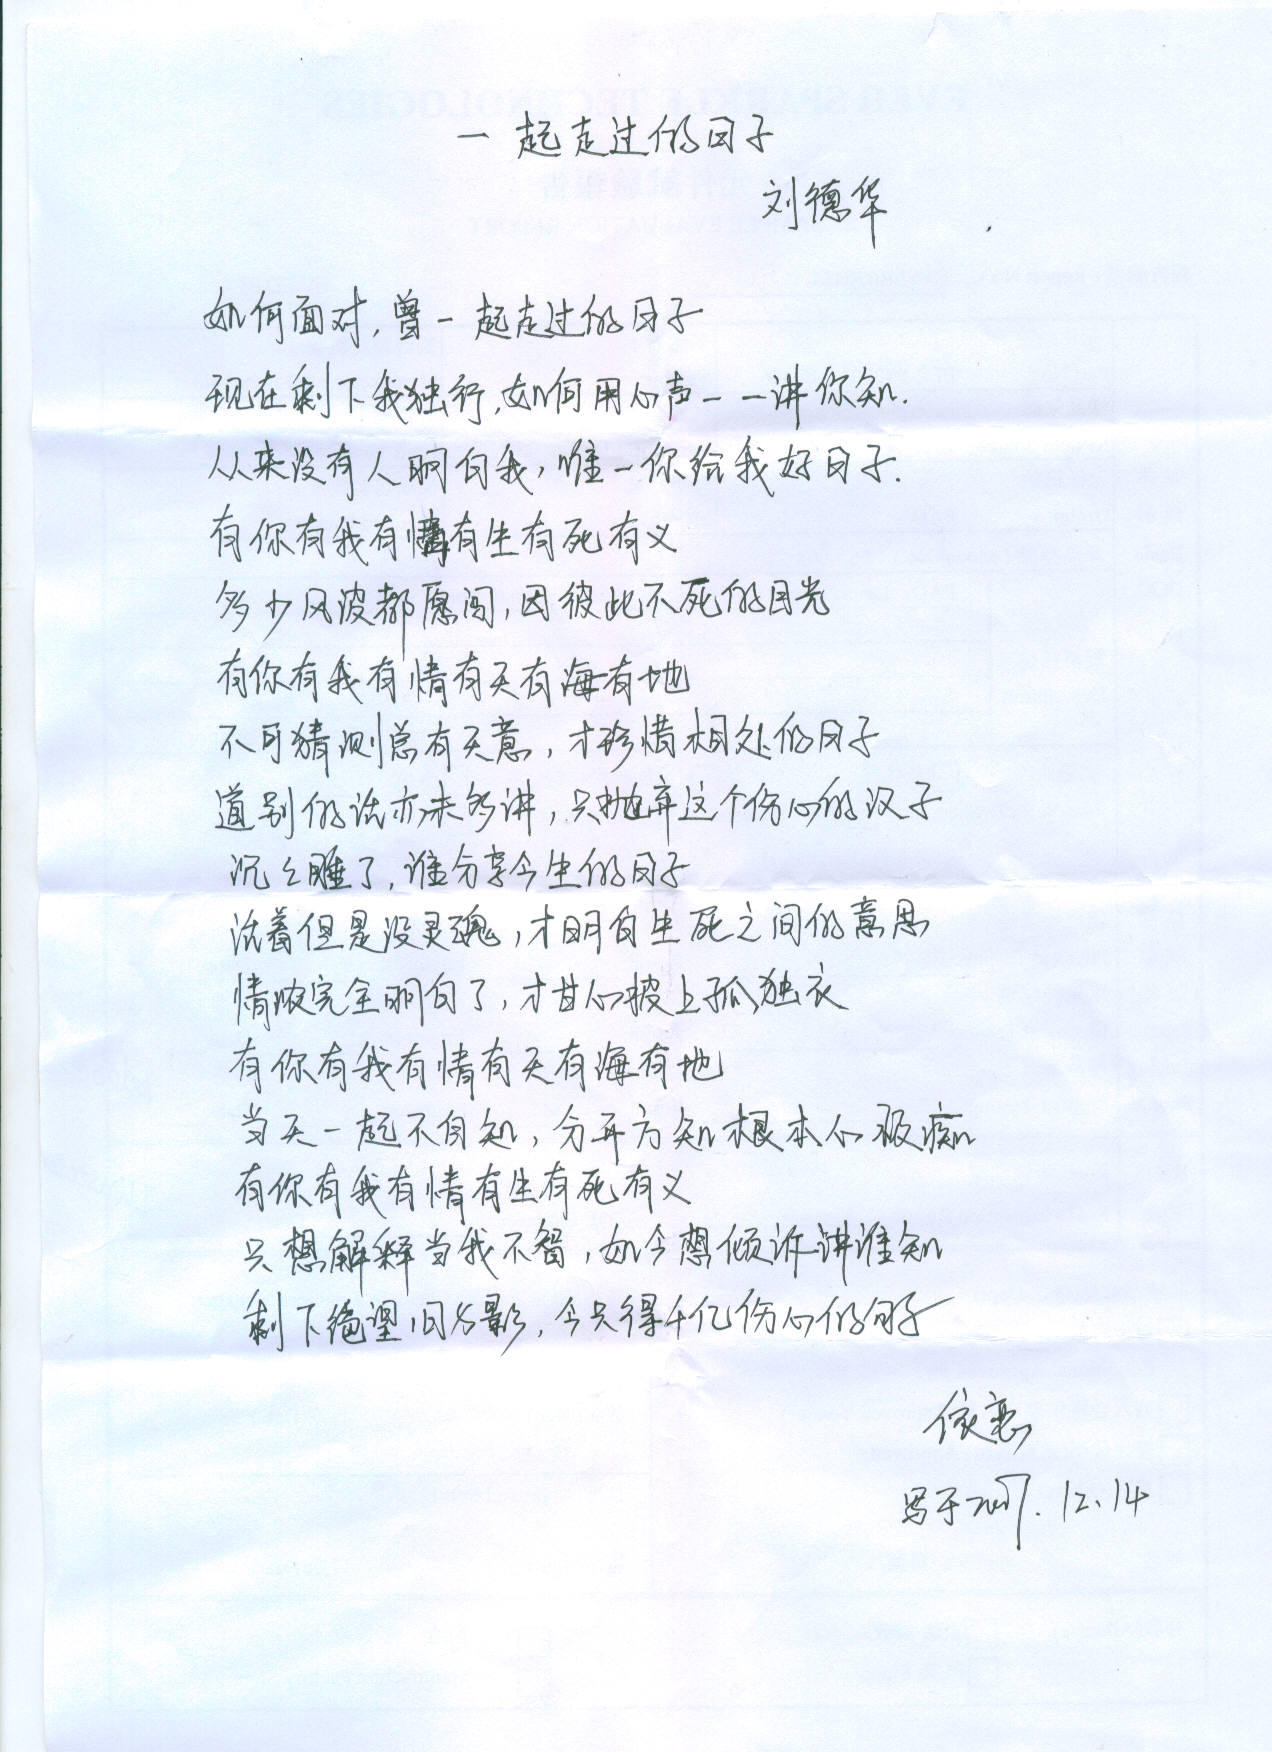 一起走过的日子
刘德华
如何面对,曾一起走过的日子
现在剩下我独行,如何用心声一一讲你知.
从来没有人明白我,唯一你给我好日子.
有你有我有情有生有死有义
多少风波都愿闯,因彼此不死的目光
有你有我有情有天有海有地
不可猜测总有天意,才珍惜相处的日子
道别的话亦未多讲,只抛弃这个伤心的汉子
沉々睡了,谁分享今生的日子
活着但是没灵魂,才明白生死之间的意思
情浓完全明白了,才甘心披上孤独衣
有你有我有情有天有海有地
当天一起不自知,分开方知根本心极痴
有你有我有情有生有死有义
只想解释当我不智,如今想倾诉讲谁知
剩下绝望旧身影,今只得千亿伤心的句子
写于2007.12.14